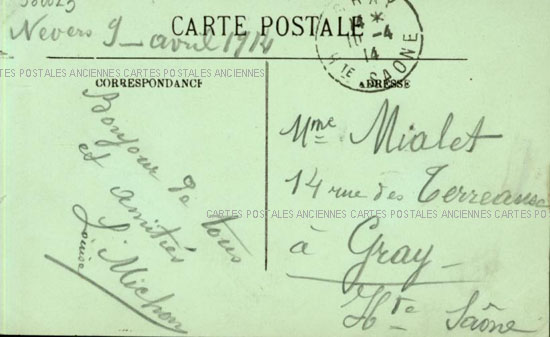 CARTE POSTALE
Nevers 9 avril 1914
-4
14
Hte SAONE
CARTES POSTALES ANCIENNES CARTES POSTALES ANCIENNES
CORRESPONDANCE
ADRESSE
Bonjour de tous
et amitiés
L. Michon
Louise
Mme Mialet
14 rue des
CARTES POSTALES ANCIENNES CARTES POSTALES ANCIENNES CARTES POSTALES
à Gray
Hte Saône